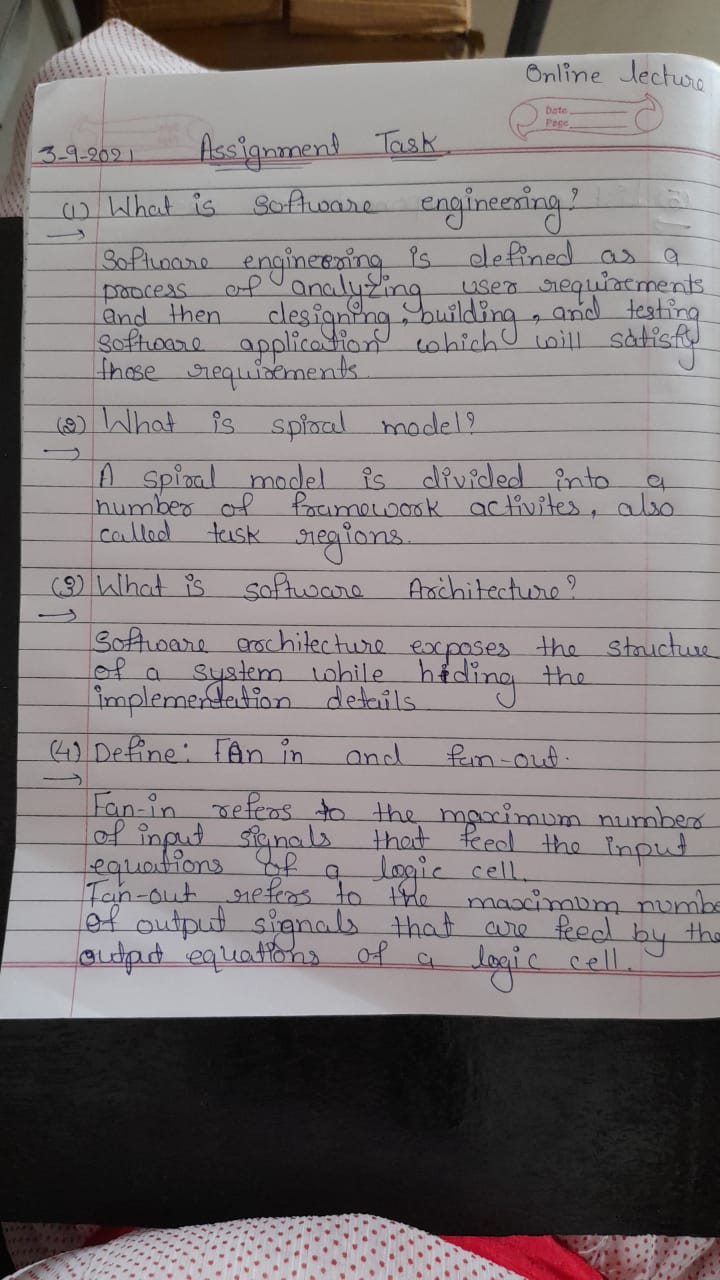 Online lecture
Date
Page
3-9-2021 Assignment Task
(1) What is software engineering?
→ Software engineering is defined as a
process of analyzing user requirements
and then designing, building, and testing
software application which will satisfy
those requirements.
(2) What is spiral model?
→ A spiral model is divided into a
number of framework activites, also
called task regions.
(3) What is software Architecture?
→ Software architecture exposes the structure
of a system while hiding the
implementation details
(4) Define: FAn in and fan-out.
→ Fan-in refers to the maximum number
of input signals that feed the input
equations of a logic cell.
Fan-out refers to the maximum numbe
of output signals that are feed by the
output equations of a logic cell.